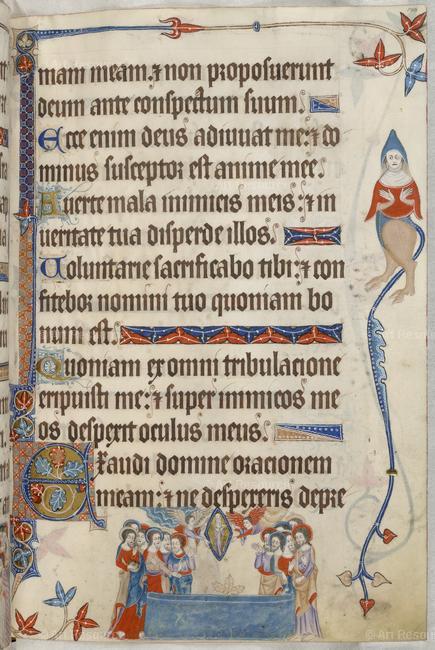 mam meam. ⁊ non proposuerunt
deum ante conspectum suum.
Ecce enim deus adiuuat me: ⁊ do
minus susceptor est anime mee.
Auerte mala inimicis meis: ⁊ in
ueritate tua disperde illos.
Uoluntarie sacrificabo tibi: ⁊ con
fitebor nomini tuo quoniam bo
num est.
Quoniam ex omni tribulacione
eripuisti me: ⁊ super inimicos me
os despexit oculus meus.
Exaudi domine oracionem
meam: ⁊ ne despexeris depre
© Art Resource